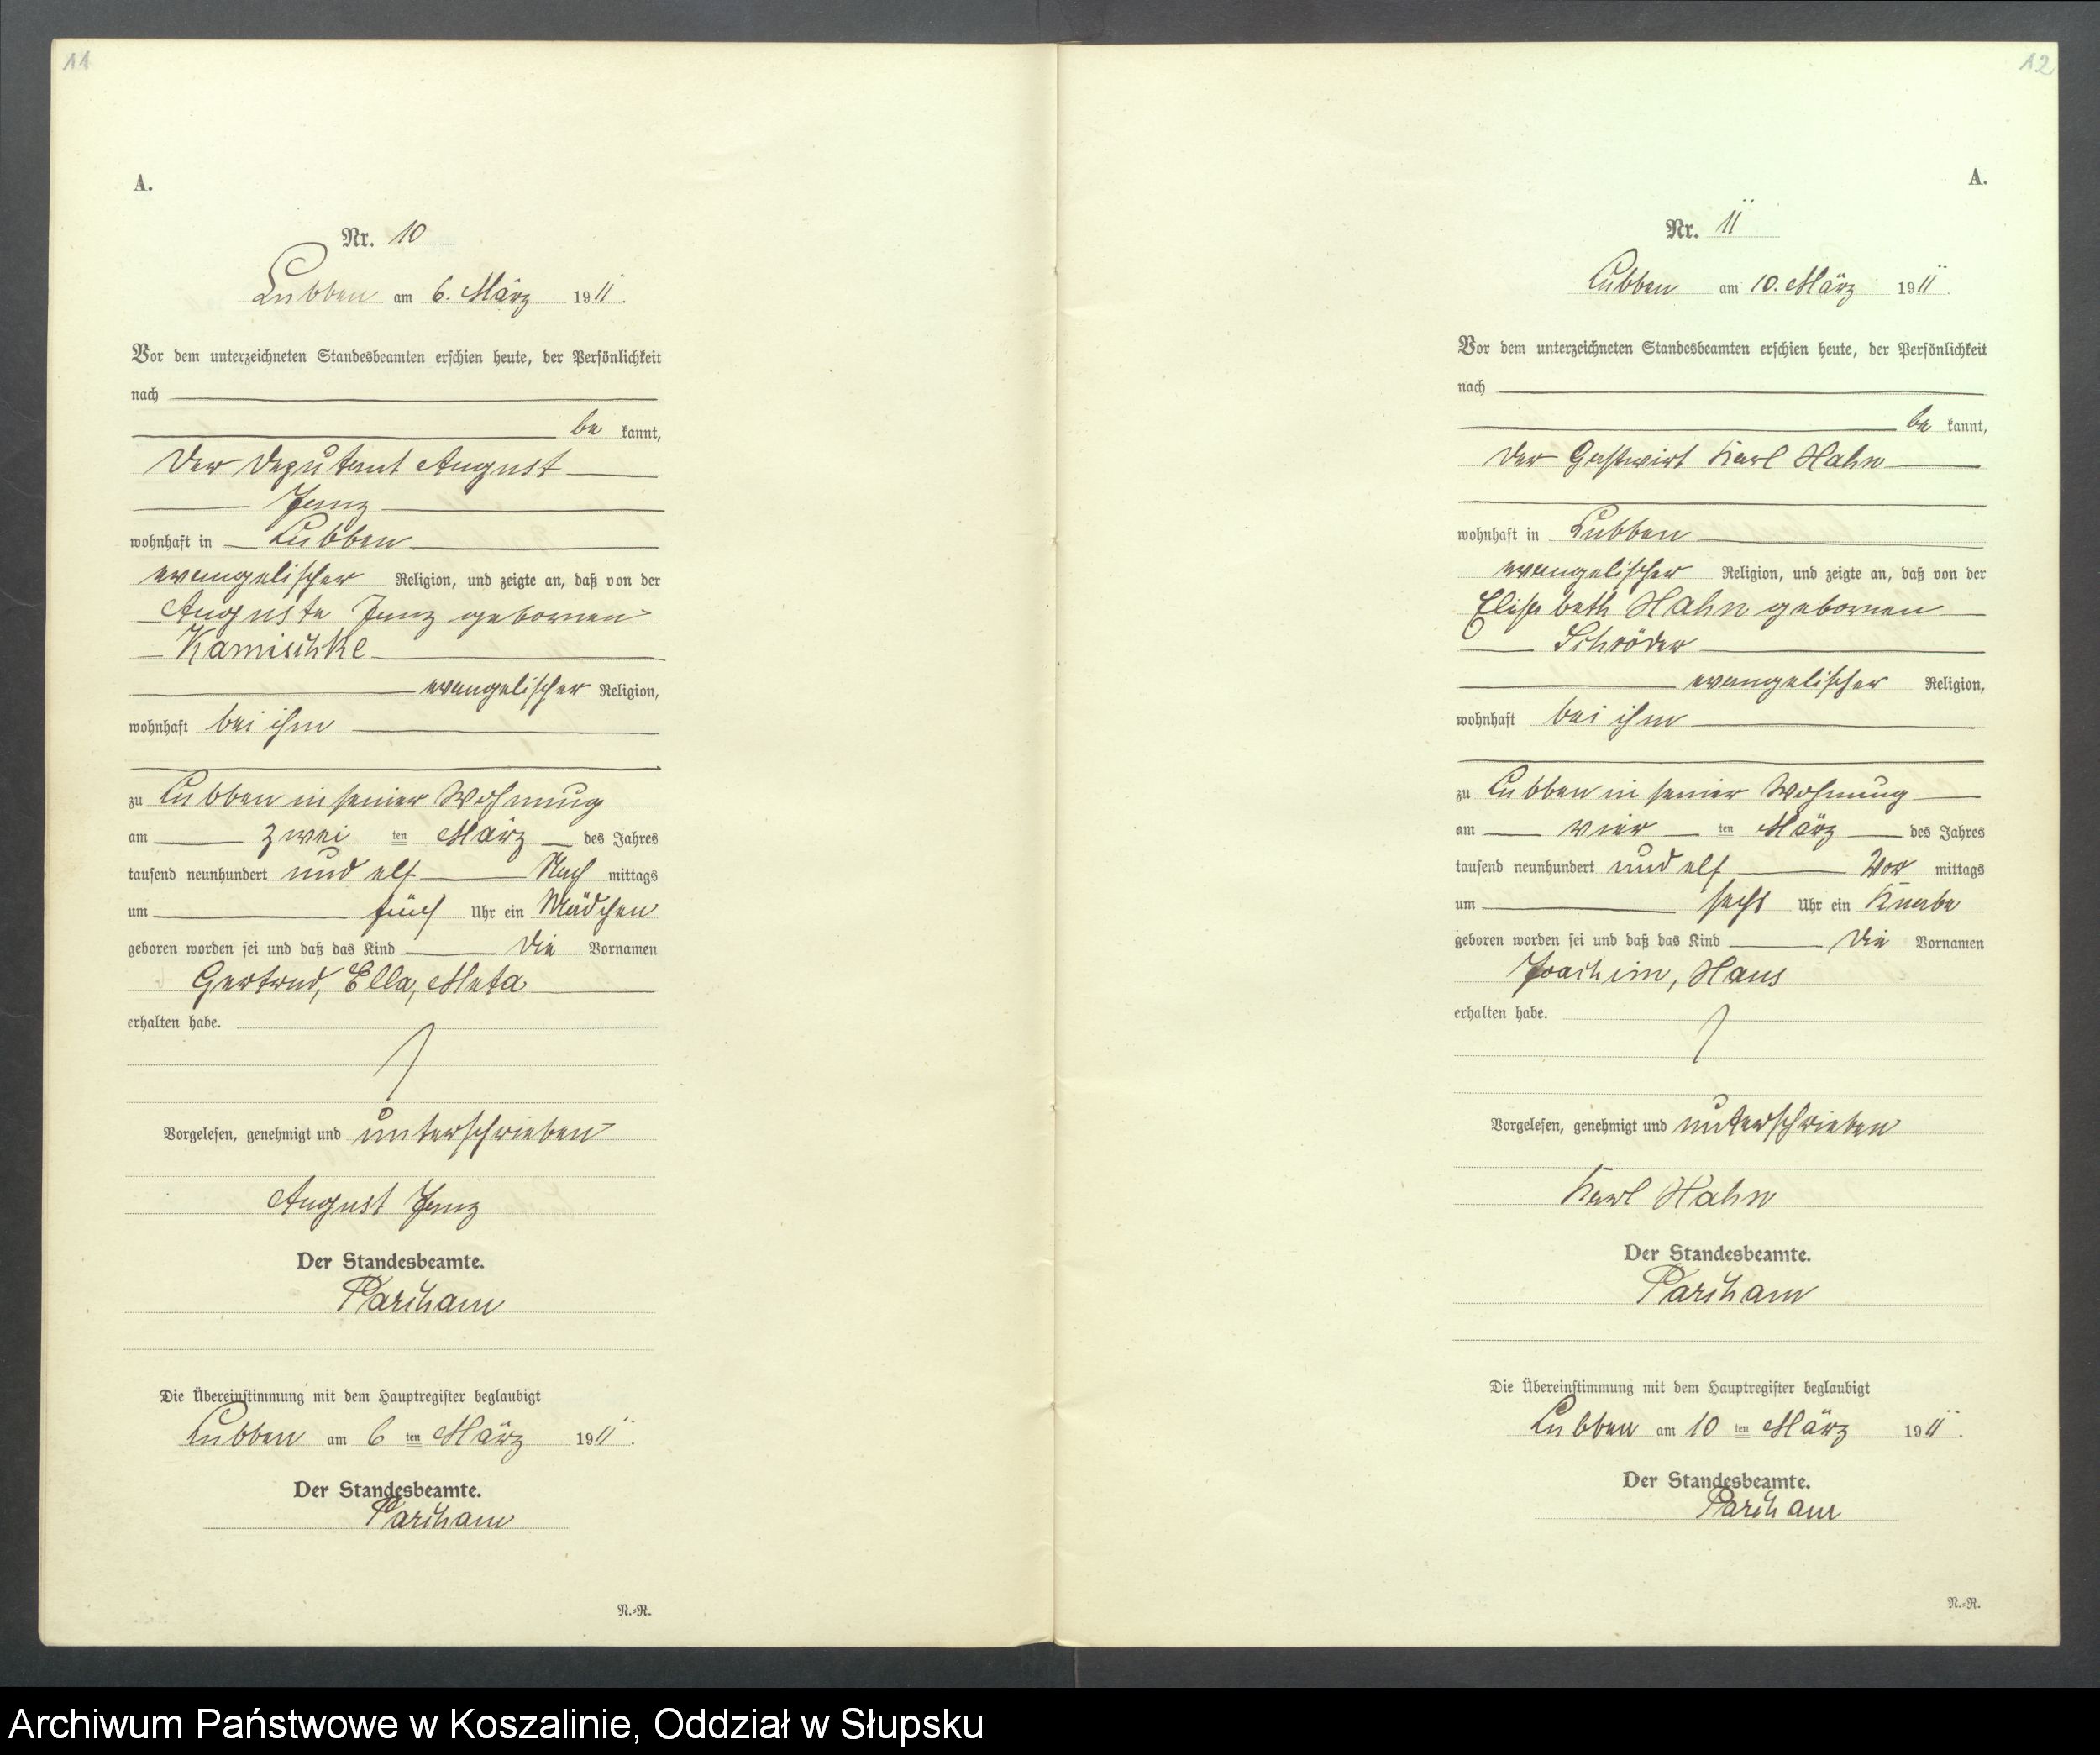 11
A.
Nr. 10
Lubben am 6. März 1911.
Vor dem unterzeichneten Standesbeamten erschien heute, der Persönlichkeit
nach
be kannt,
der Deputant August
Janz
wohnhaft in Lubben
evangelischer Religion, und zeigte an, daß von der
Auguste Janz geboren
Kamischke
evangelischer Religion,
wohnhaft bei ihm
zu Lubben in seiner Wohnung
am zwei ten März des Jahres
tausend neunhundert und elf Nach mittags
um fünf Uhr ein Mädchen
geboren worden sei und daß das Kind die Vornamen
Gertrud, Ella, Meta
erhalten habe.
Vorgelesen, genehmigt und unterschrieben
August Janz
Der Standesbeamte.
Parcham
Die Übereinstimmung mit dem Hauptregister beglaubigt
Lubben am 6 ten März 1911.
Der Standesbeamte.
Parcham
N.-R.
12
A.
Nr. 11
Lubben am 10. März 1911.
Vor dem unterzeichneten Standesbeamten erschien heute, der Persönlichkeit
nach
be kannt,
der Gastwirt Karl Hahn
wohnhaft in Lubben
evangelischer Religion, und zeigte an, daß von der
Elisabeth Hahn geboren
Schröder
evangelischer Religion,
wohnhaft bei ihm
zu Lubben in seiner Wohnung
am vier ten März des Jahres
tausend neunhundert und elf Vor mittags
um sechs Uhr ein Knabe
geboren worden sei und daß das Kind die Vornamen
Joachim, Hans
erhalten habe.
Vorgelesen, genehmigt und unterschrieben
Karl Hahn
Der Standesbeamte.
Parcham
Die Übereinstimmung mit dem Hauptregister beglaubigt
Lubben am 10 ten März 1911.
Der Standesbeamte.
Parcham
N.-R.
Archiwum Państwowe w Koszalinie, Oddział w Słupsku